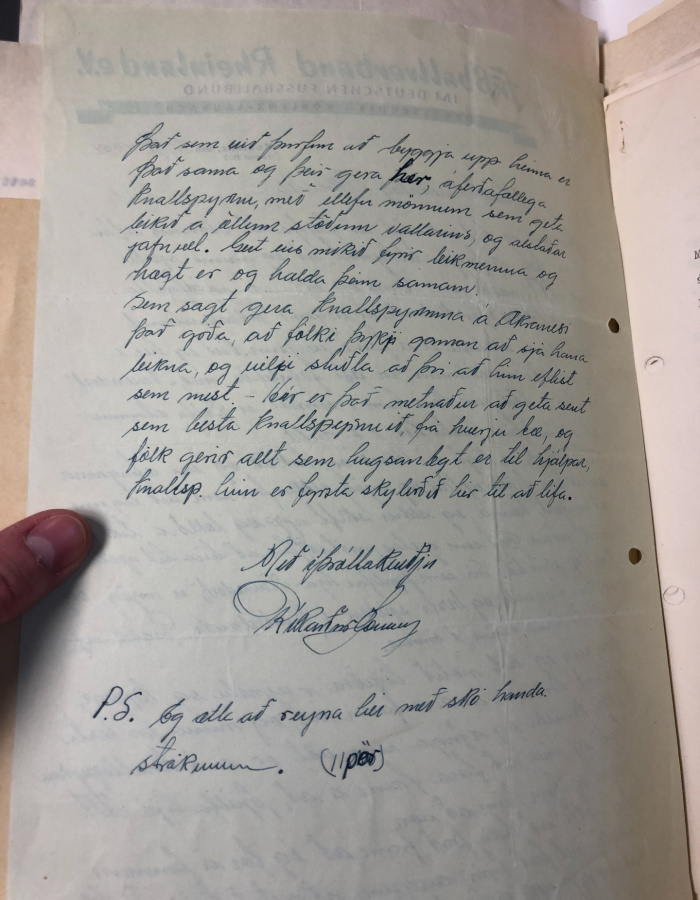 Það sem við þurfum að byggja upp heima er
það sama og þeir gera hér, áferðafallega
knallspyrnu, með ellefu mönnum sem geta
leikið á öllum stöðum vallarins, og alstaðar
jafnvel. Gert eins mikið fyrir leikmennina og
hægt er og halda þeim saman.
Sem sagt gera knallspyrnuna á Akranesi
það góða, að fólki þykji gaman að sjá hana
leikna, og vilji stuðla að því að hún eflist
sem mest. – Hér er það metnaður að geta sent
sem besta knallspyrnulið, frá hverju bæ, og
fólk gerir allt sem hugsanlegt er til hjálpar,
knallsp. hún er fyrsta skylirðið hér til að lifa.
Með íþróttakveðju
Ríkarður Jónsson
P.S. Eg ætla að reyna hér með skó handa
strákunum. (11 pör)
Fußballverband Rheinland e.V.
IM DEUTSCHEN FUSSBALLBUND